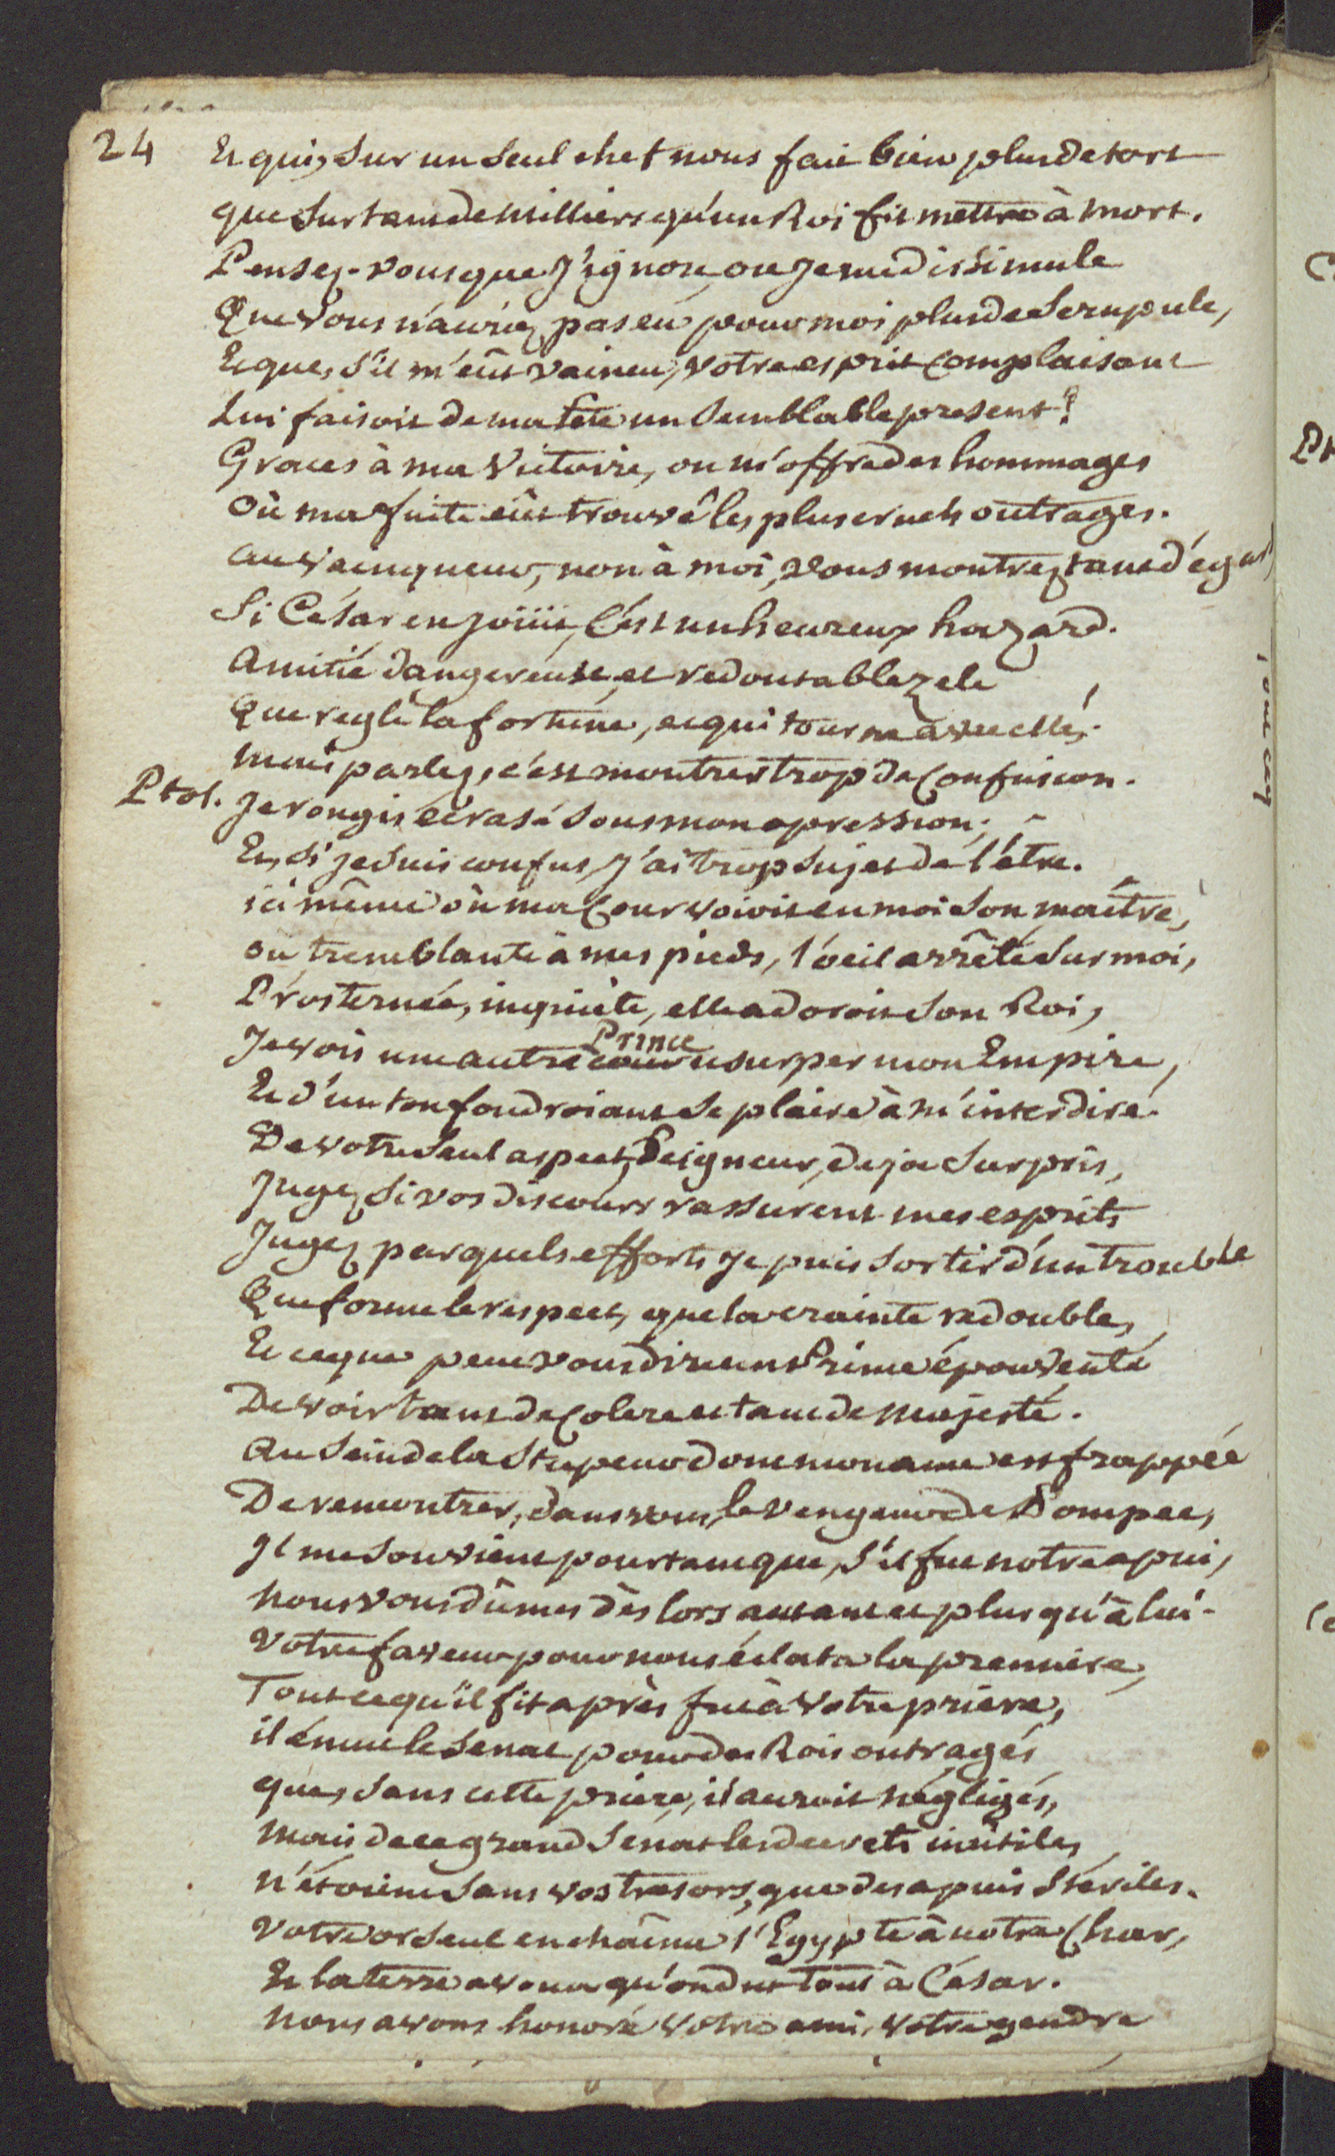 24
Et qui, sur un seul chef nous fait bien plus de tort
que sur tant de milliers qu'un Roi fit mettre à mort.
Pensez-vous que J'ignore, ou Je me dissimule
Que vous n'auriez pas eu pour moi plus de Scrupule,
Et que, s'il m'eût vaincu, votre esprit complaisant
Lui faisoit de ma tête un semblable present?
Graces à ma Victoire, on m'offre des hommages
Où ma fuite eût trouvé les plus cruels outrages.
au vainqueur, non à moi, vous montrez tant d'égard,
Si César en joüit, c'est un heureux hazard.
Amitié dangereuse, et redoutable zele
Que regle la fortune, et qui tourne avec elle!
mais parlez, c'est montrer trop de confusion.
Ptol. Je rougis écrasé sous mon opression;
Et, si je suis confus, J'ai trop sujet de l'être.
ici même où ma Cour voioit en moi son maître,
où tremblante à mes pieds, l'oeil arrêté sur moi,
Prosternée, inquiète, elle adoroit son Roi,
Je vois une autre cour usurper mon Empire,
Prince
Et d'un ton foudroiant se plaire à m'interdire.
De votre seul aspect, Seigneur, deja surpris,
Jugez si vos discours rassurent mes esprits
Jugez par quels efforts je puis sortir d'un trouble
Que forme le respect, que la crainte redouble,
Et ce que peut vous dire un Prince épouventé
De voir tant de Colere et tant de majesté.
Au sein de la stupeur dont mon ame est frappée
De rencontrer, dans vous, le vengeur de Pompée,
Il me souvient pourtant que, s'il fut notre apui,
nous vous dûmes dès lors autant et plus qu'à lui.
Votre faveur pour nous éclata la premiere,
Tout ce qu'il fit après fut à votre priere,
il émut le Senat pour des Rois outragés
que, sans cette priere, il auroit négligés,
mais de ce grand Sénat les decrets inutiles
n'étoient sans vos tresors, que des apuis stériles.
Votre or seul enchaîna l'Egypte à notre Char,
Et la terre avoua qu'on dut tout à César.
nous avons honoré votre ami, votre gendre